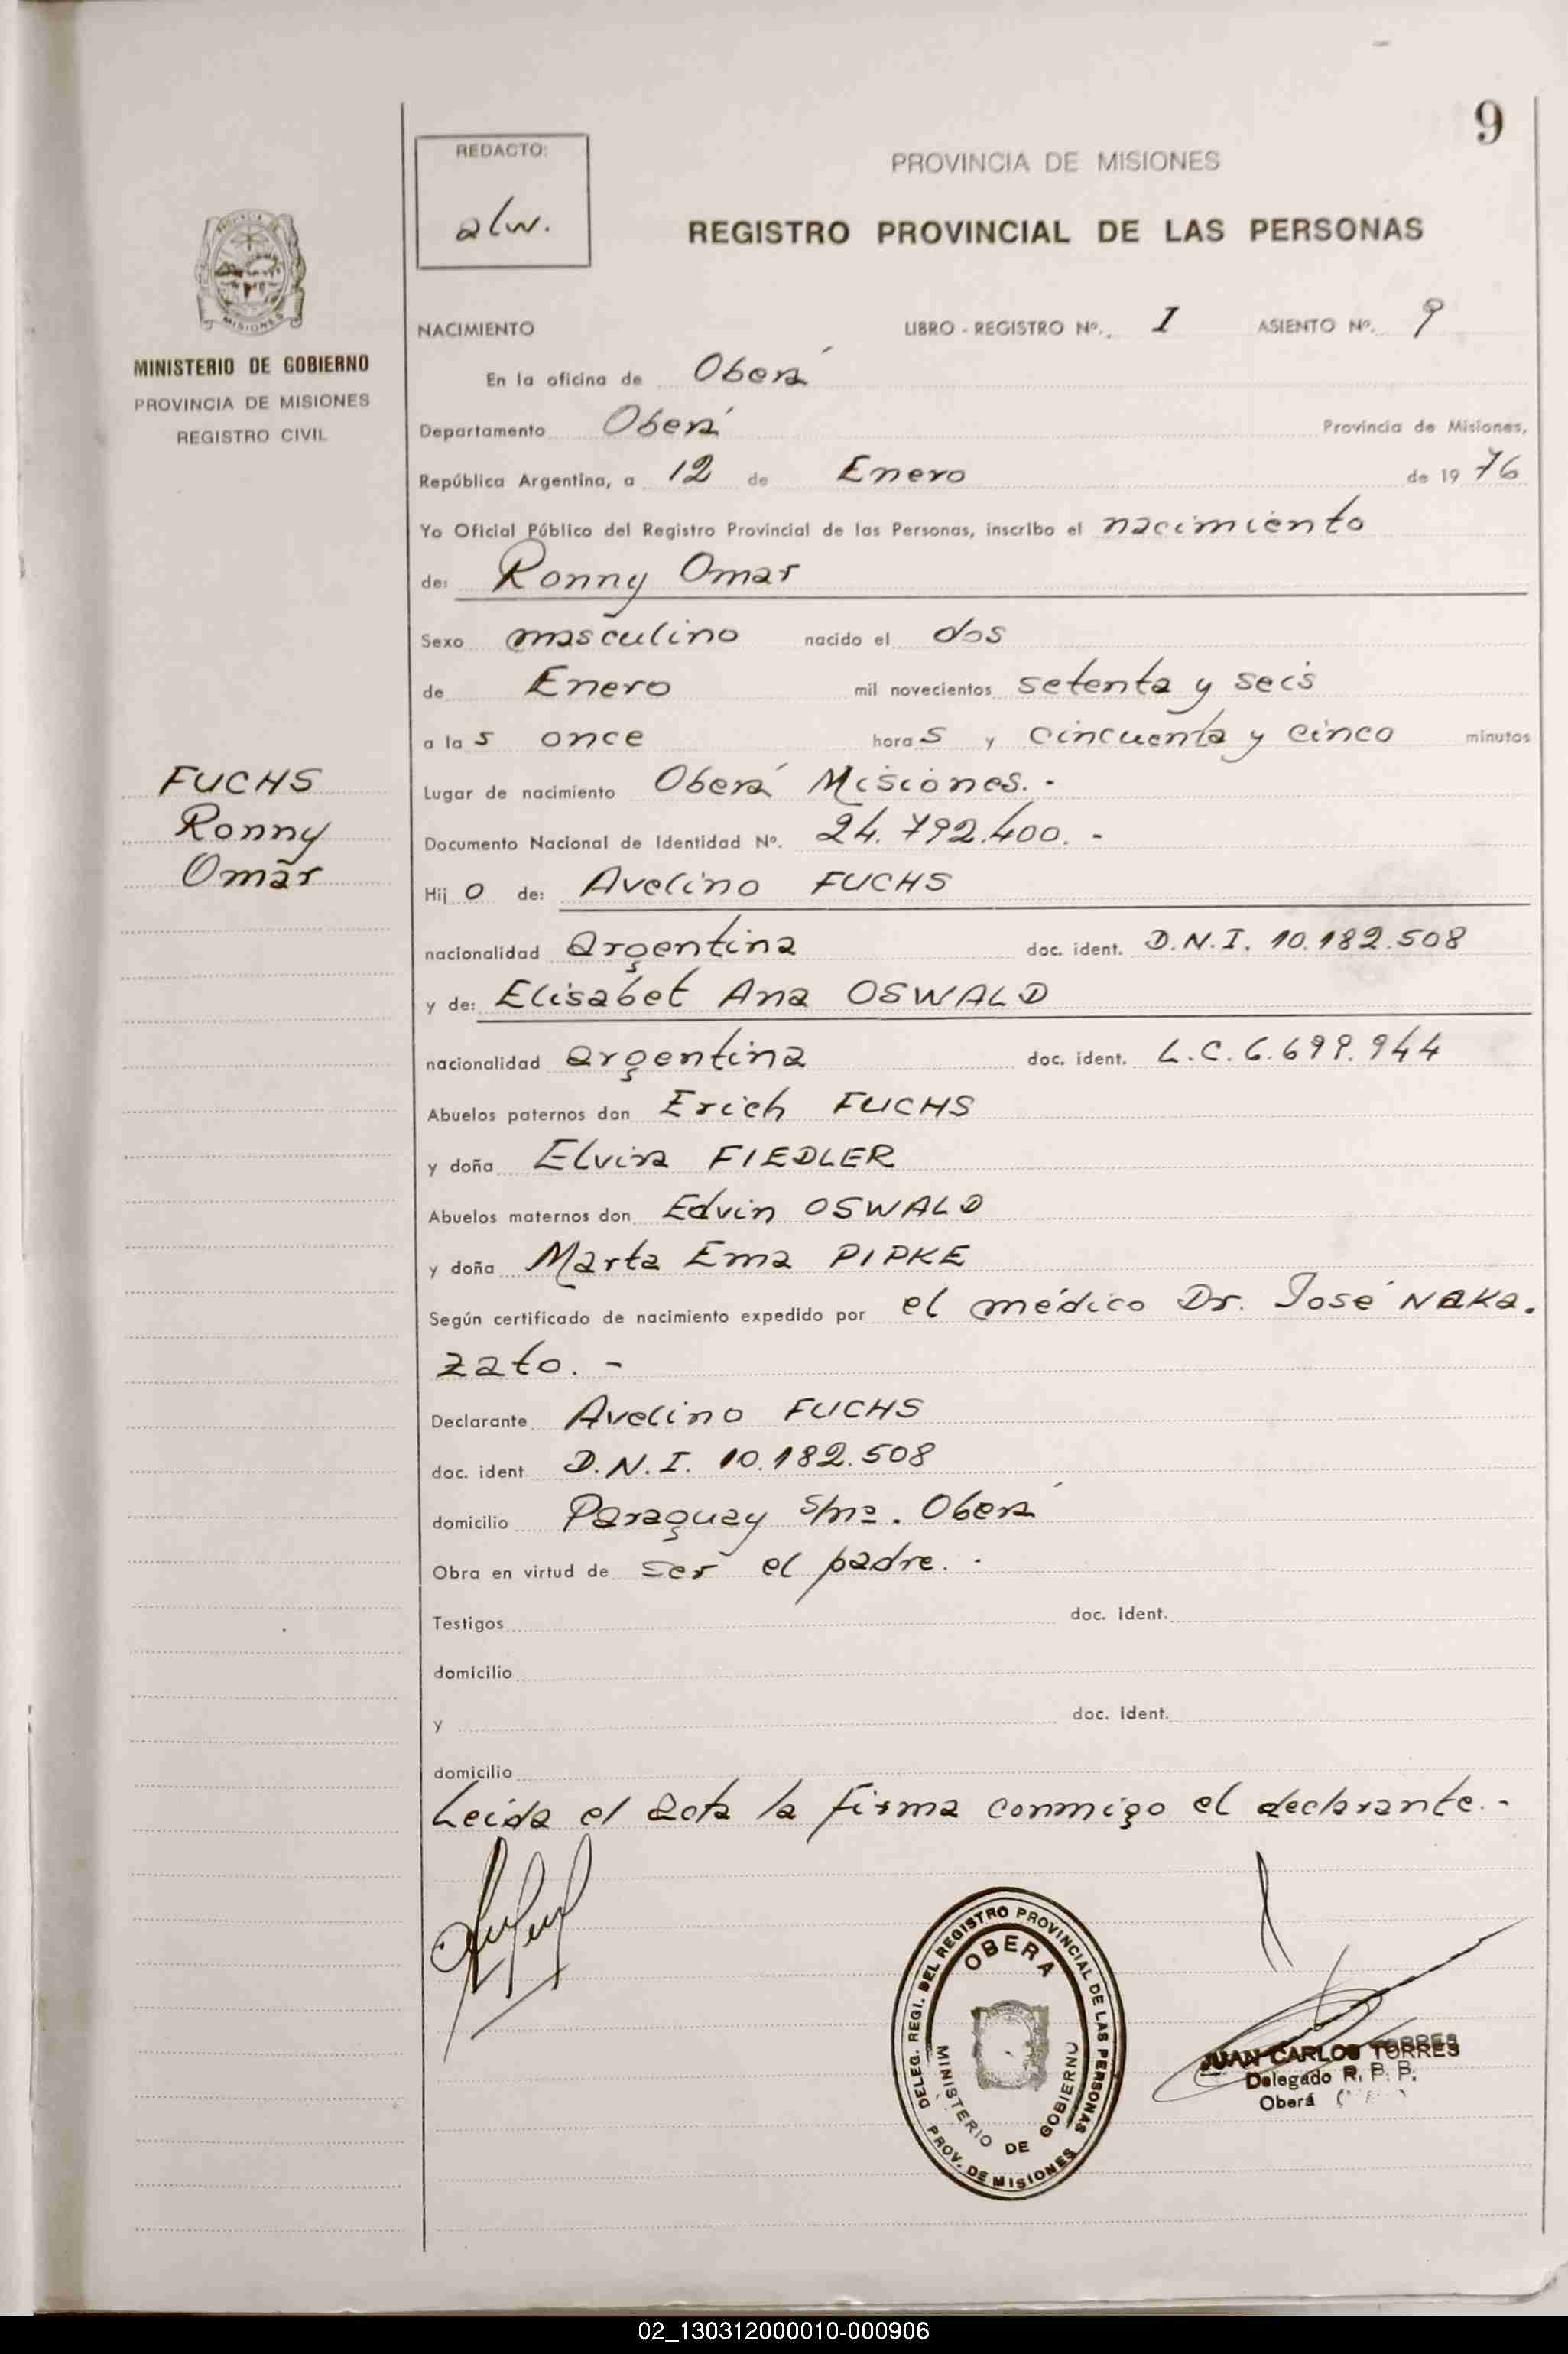 9
REDACTO:
alw.
PROVINCIA DE MISIONES
REGISTRO PROVINCIAL DE LAS PERSONAS
MISIONES
MINISTERIO DE GOBIERNO
PROVINCIA DE MISIONES
REGISTRO CIVIL
NACIMIENTO LIBRO - REGISTRO Nº. I ASIENTO Nº. 9
En la oficina de Oberá
Departamento Oberá Provincia de Misiones,
República Argentina, a 12 de Enero de 19 76
Yo Oficial Público del Registro Provincial de las Personas, inscribo el nacimiento
de: Ronny Omar
Sexo masculino nacido el dos
de Enero mil novecientos setenta y seis
a las once horas y cincuenta y cinco minutos
FUCHS
Ronny
Omar
Lugar de nacimiento Oberá Misiones. -
Documento Nacional de Identidad Nº. 24.792.400. -
Hijo de: Avelino FUCHS
nacionalidad argentina doc. ident. D.N.I. 10.182.508
y de: Elisabet Ana OSWALD
nacionalidad argentina doc. ident. L.C. 6.699.944
Abuelos paternos don Erich FUCHS
y doña Elvira FIEDLER
Abuelos maternos don Edvin OSWALD
y doña Marta Ema PIPKE
Según certificado de nacimiento expedido por el médico Dr. José Naka.
zato. -
Declarante Avelino FUCHS
doc. ident D.N.I. 10.182.508
domicilio Paraguay s/nº. Oberá
Obra en virtud de ser el padre. -
Testigos doc. ident.
domicilio
y doc. ident.
domicilio
Leida el acta la firma conmigo el declarante. -
DELEG. REGI. DEL REGISTRO PROVINCIAL DE LAS PERSONAS
OBERA
MINISTERIO DE GOBIERNO
PROV. DE MISIONES
JUAN CARLOS TORRES
Delegado R. P. P.
Oberá
02_130312000010-000906